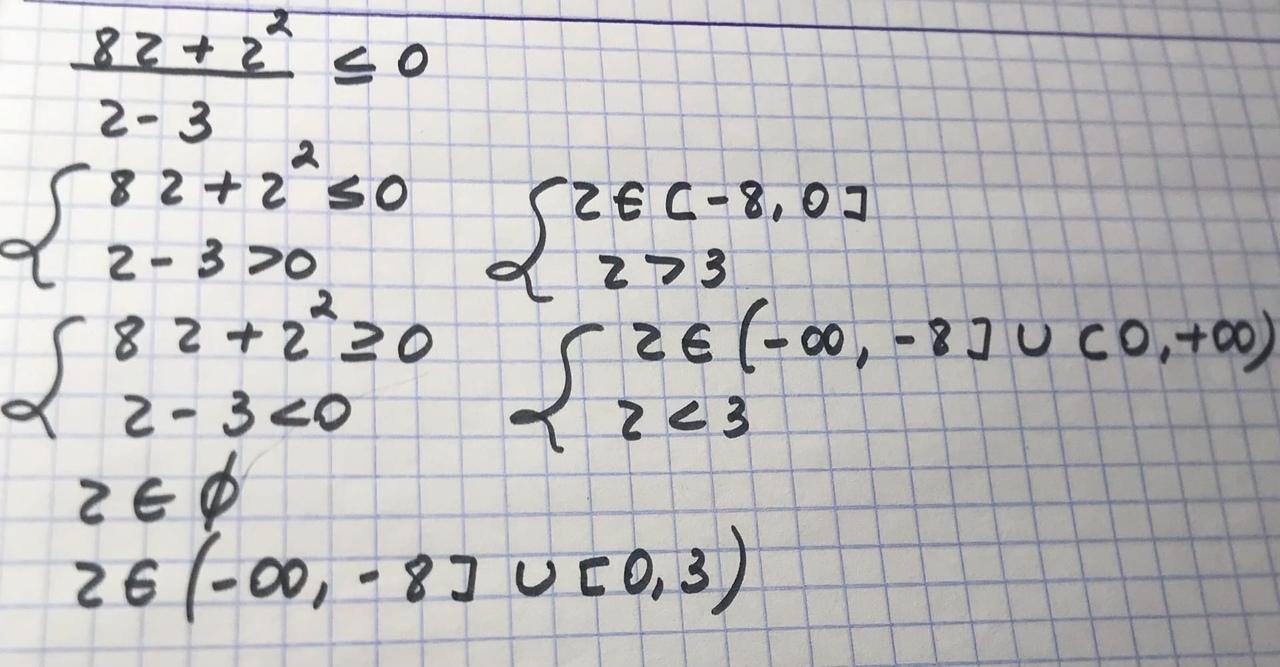 8z + z² ≤ 0
z - 3
{ 8z + z² ≤ 0 { z ∈ [-8, 0]
z - 3 > 0 z > 3
{ 8z + z² ≥ 0 { z ∈ (-∞, -8] ∪ [0, +∞)
z - 3 < 0 z < 3
z ∈ ∅
z ∈ (-∞, -8] ∪ [0, 3)